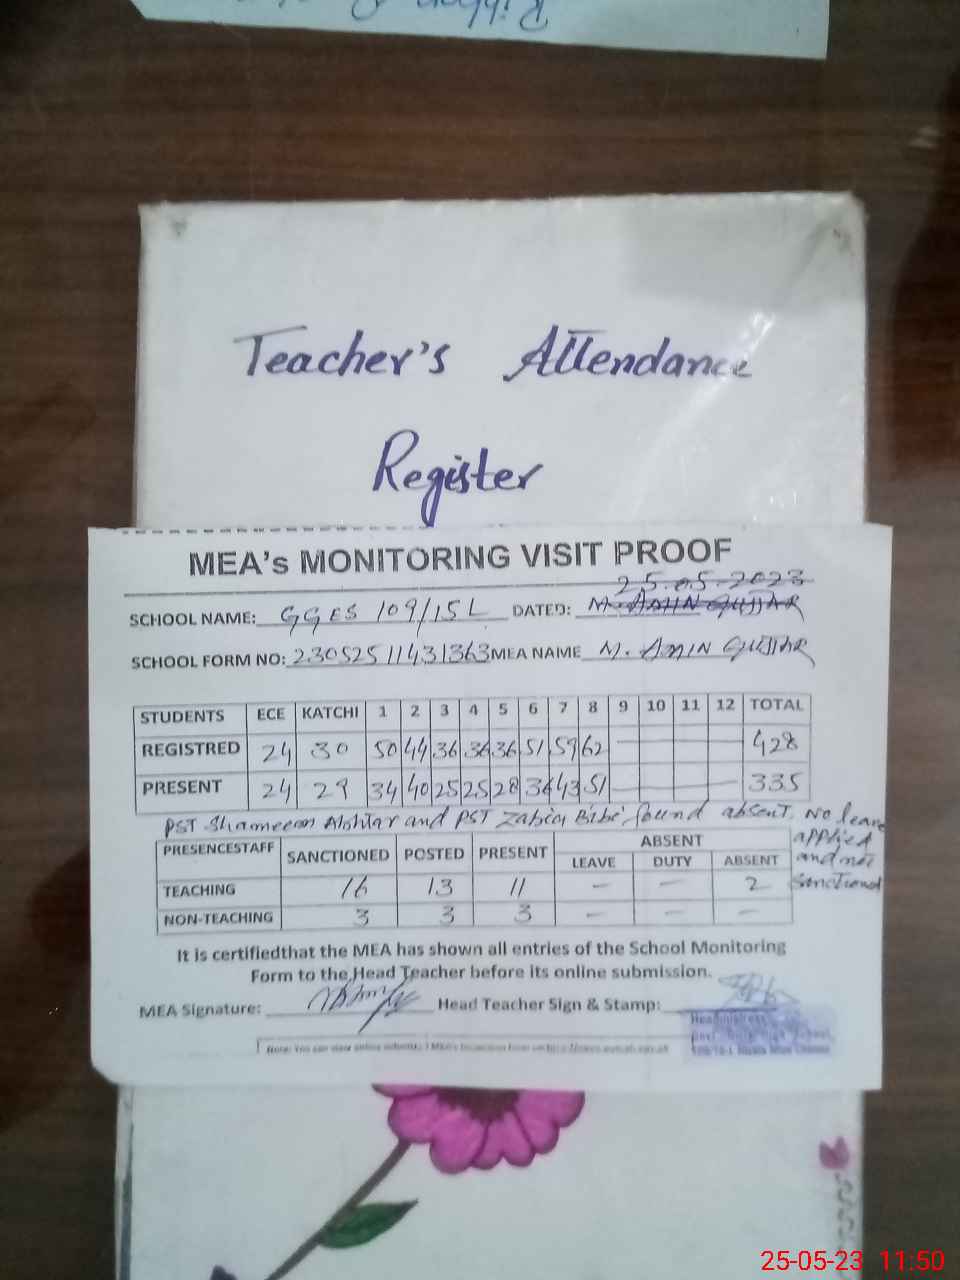 Teacher's Attendance
Register
MEA's MONITORING VISIT PROOF
25.05.2023
SCHOOL NAME: GGES 109/15L DATED: M. AMIN GUJJAR
SCHOOL FORM NO: 23052511431363 MEA NAME M. AMIN GUJJAR
STUDENTS ECE KATCHI 1 2 3 4 5 6 7 8 9 10 11 12 TOTAL
REGISTRED 24 30 50 44 36 36 36 51 59 62 428
PRESENT 24 29 34 40 25 25 28 36 43 51 335
PST Shameem Akhtar and PST Zabia Bibi found absent. No leave
applied
and not
sanctioned
PRESENCESTAFF SANCTIONED POSTED PRESENT ABSENT
LEAVE DUTY ABSENT
TEACHING 16 13 11 – – 2
NON-TEACHING 3 3 3 – – –
It is certifiedthat the MEA has shown all entries of the School Monitoring
Form to the Head Teacher before its online submission.
MEA Signature: Head Teacher Sign & Stamp:
Headmistress
Note: You can view online submitted MEA's
25-05-23 11:50